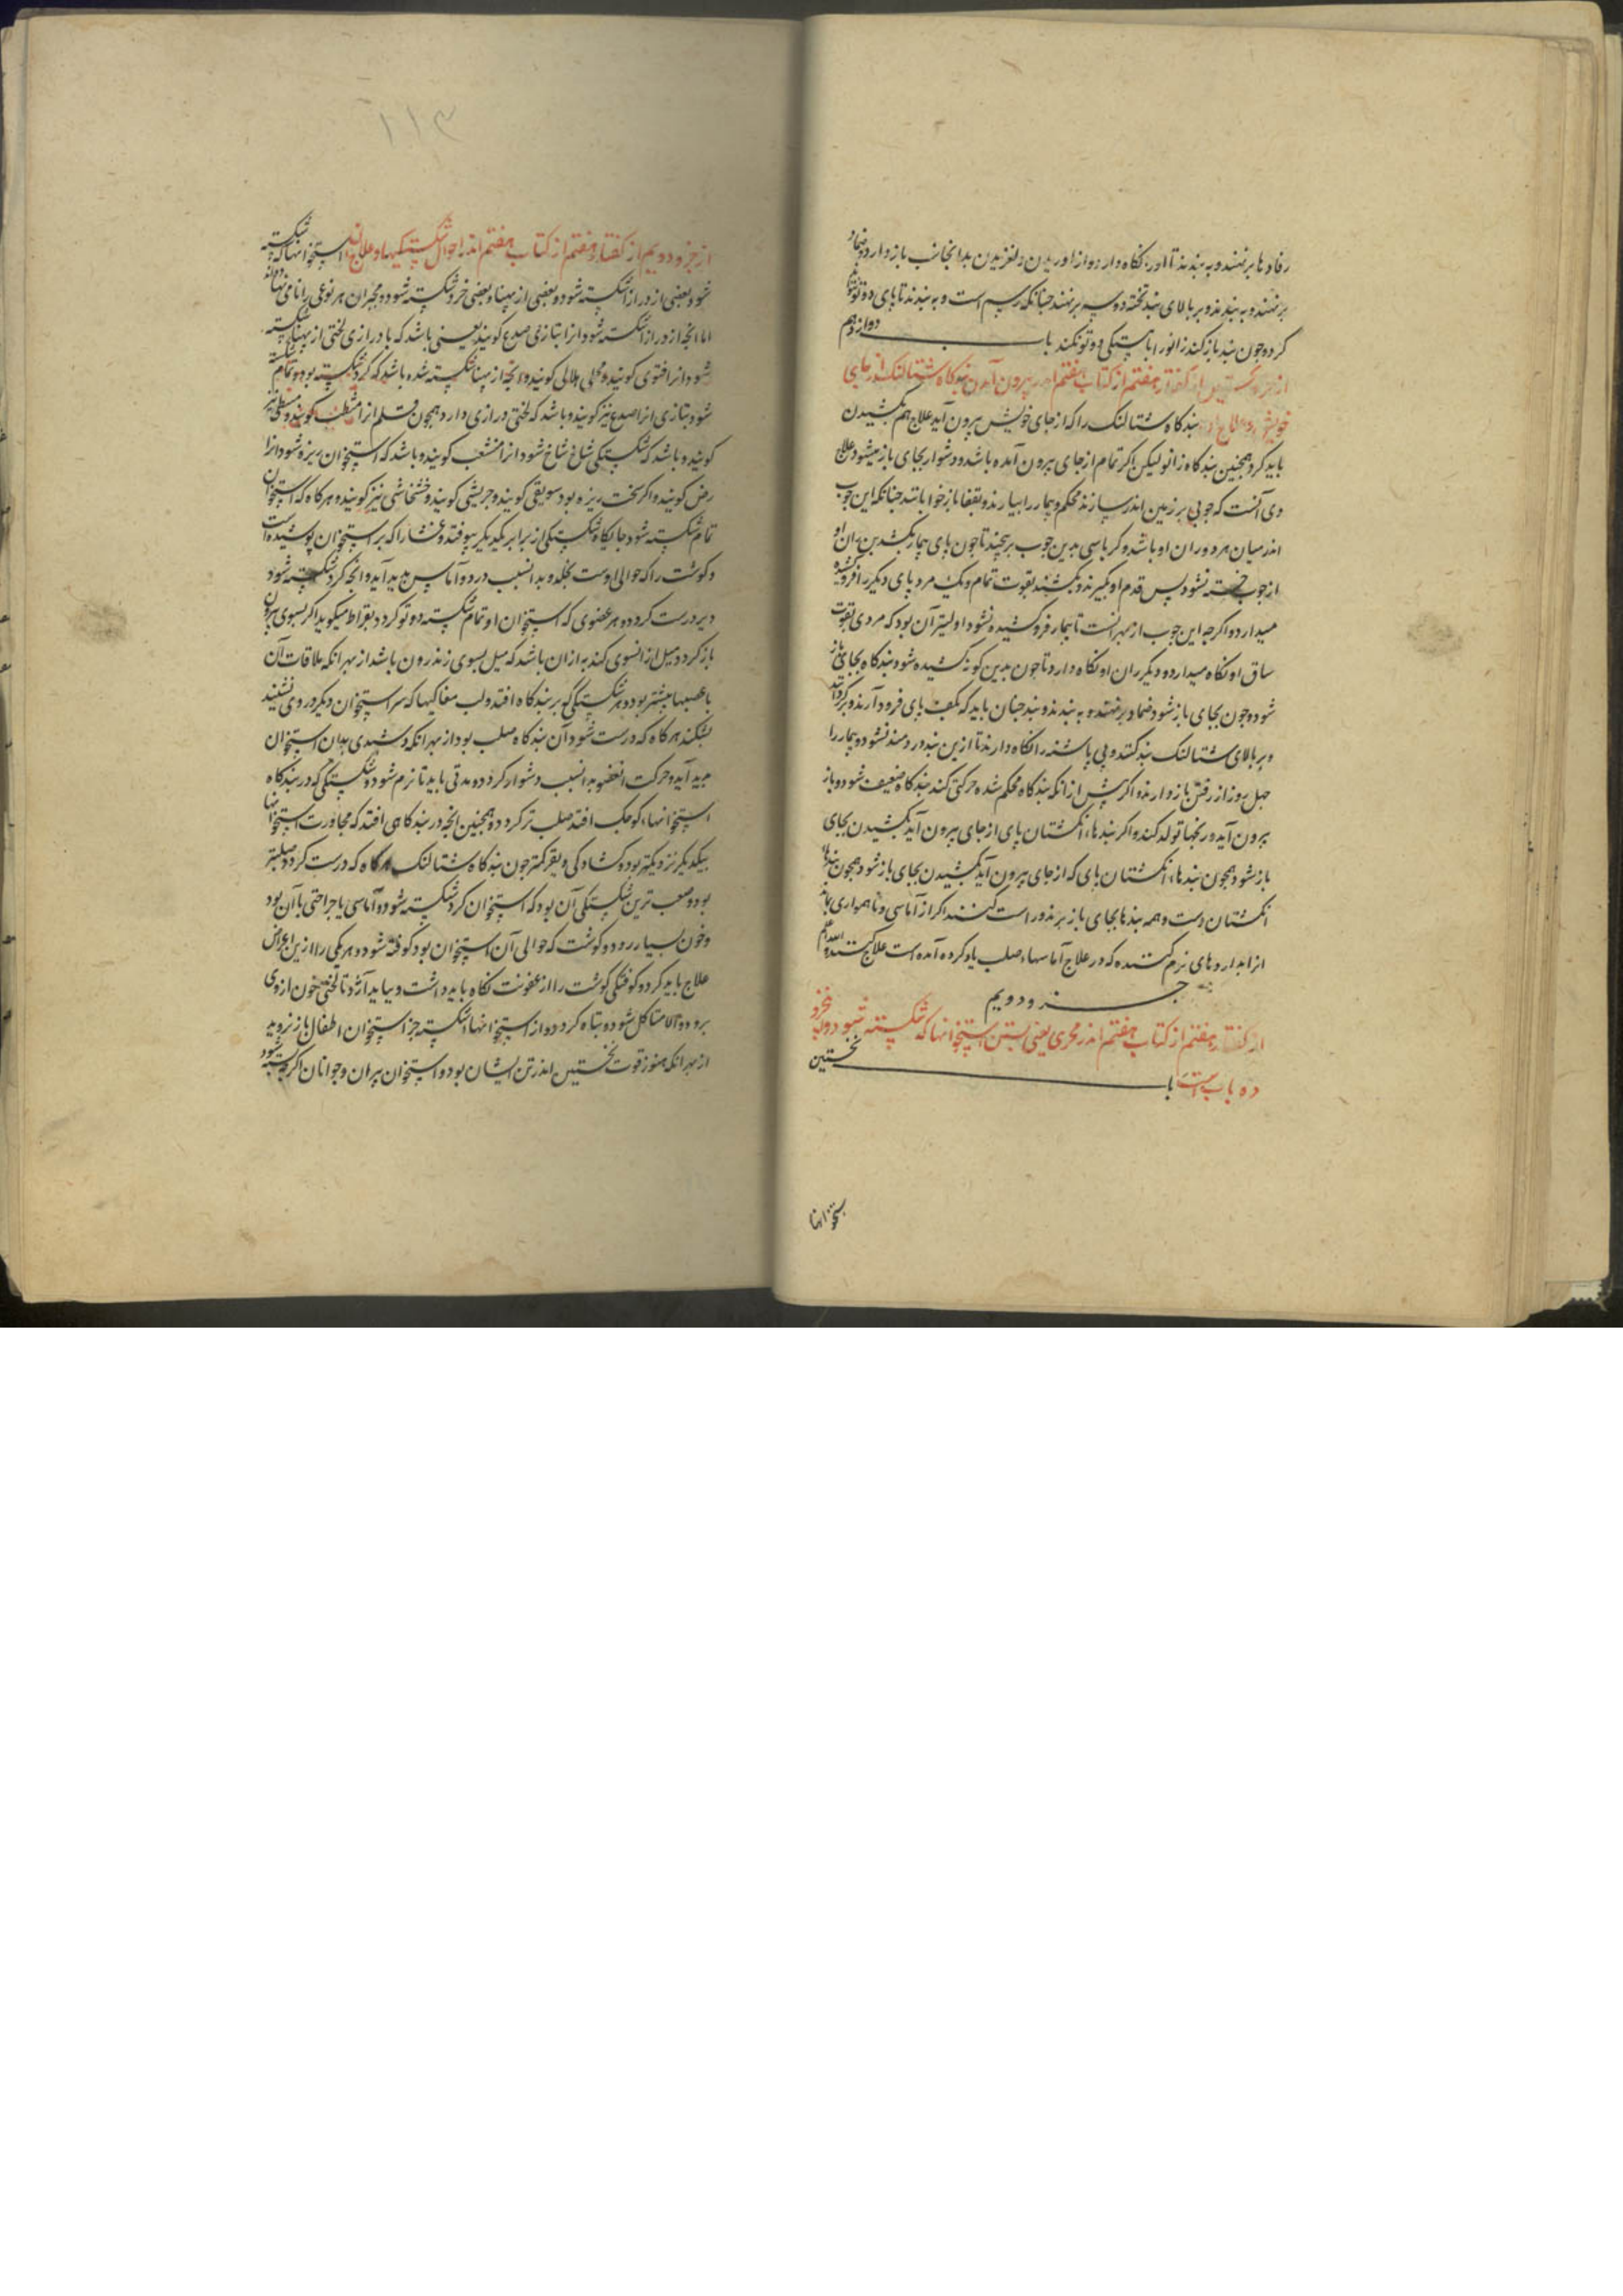 رفادها برنهند و به بندند تا او را نکاه دارد و از لغزیدن بدانجانب باز دارد و ضماد
برنهند و به بندند و بر بالای بند تخته دو سه برنهند جنانکه رسم است و به بندند تا بای دوتو
کرد و جون بند باز کنند زانو را باهستکی دوتو کنند باب دوازدهم
از جزو نخستین از کفتار هفتم از کتاب هفتم اندر بیرون آمدن بندکاه شتالنک از جای
خویش و علاج او بندکاه شتالنک را که از جای خویش بیرون آید علاج هم بکشیدن
باید کرد همجنین بندکاه زانو لیکن اکر تمام از جای بیرون آمده باشد و دشوار بجای باز میشود علاج
وی آنست که جوبی بر زمین اندر سازند محکم و بیمار را بیارند و بقفا باز خوابانند جنانکه این جوب
اندر میان هر دو ران او باشد و کرباسی بدین جوب بر بیچند تا جون بای بیمار بکشند بن ران او
از جوب خسته نشود پس قدم او بکیرند و بکشند بقوت تمام و یک مرد پای دیکر را فرو کشیده
میدارد و اکرجه این جوب از بهر آنست تا بیمار فرو کشیده نشود اولیتر آن بود که مردی بقوت
ساق او نکاه میدارد و دیکر ران او نکاه دارد تا جون بدین کونه کشیده شود بندکاه بجای باز
شود و جون بجای باز شود ضماد برنهند و به بندند و بند جنان باید که بکف پای فرود آرند و برکردانند
و بر بالای شتالنک بند کنند و پی پاشنه را نکاه دارند تا ازین بند دردمند نشود و بیمار را
جهل روز از رفتن باز دارند و اکر پیش از انکه بندکاه محکم شده حرکتی کند بندکاه ضعیف شود و باز
بیرون آید و رنجها تولد کند و اکر بندهاء انکشتان پای از جای بیرون آید بکشیدن بجای
باز شود همجون بندهاء انکشتان بای که از جای بیرون آید بکشیدن بجای باز شود همجون بندهاء
انکشتان دست و همه بندها بجای باز برند و راست کنند اکر از آماسی و ناهمواری بماند
از ابداروهای نرم کننده که در علاج آماسهاء صلب یاد کرده آمده است علاج کنند والله اعلم
جزو دویم
از کفتار هفتم از کتاب هفتم اندر مجبری یعنی بستن استخوانها که شکسته شود و این جزو
ده باب است باب نخستین
ستخوانها
۱۱۳
از جزو دویم از کفتار هفتم از کتاب هفتم اندر احوال شکستکیها و علاج ان استخوانها که شکسته
شود بعضی از دراز شکسته شود و بعضی از پهنا و بعضی خرد شکسته شود و مجبران هر نوعی را نامی نهاده‌اند
اما انجه از دراز شکسته شود انرا بتازی صدع کویند یعنی باشد که با درازی لختی از پهنا شکسته
شود انرا فتوی کویند و هلالی کویند و انجه از پهنا شکسته شده باشد که کرد شکسته بود و تمام شکسته
شود بتازی انرا صدع نیز کویند و باشد که لختی درازی دارد همجون قلم انرا مشطب کویند و مشطی نیز
کویند و باشد که شکستکی شاخ شاخ شود انرا منشعب کویند و باشد که استخوان ریزه شود انرا
رض کویند و اکر سخت ریزه بود سویقی کویند و جریشی کویند و خشخاشی نیز کویند و هرکاه که استخوان
تمام شکسته شود جایکاه شکستکی از برابر یکدیکر بیوفتد و غشا را که بر استخوان پوشیده است
و کوشت را که حوالی اوست بخلد و بدانسبب درد و آماس پدید آید و انجه کرد شکسته شود
دیر درست کردد و هر عضوی که استخوان او تمام شکسته دوتو کردد بقراط میکوید اکر بسوی بیرون
باز کردد و میل از انسوی کند به ازان باشد که میل بسوی اندرون باشد از بهر انکه ملاقات آن
با عصبها بیشتر بود و هر شکستکی که بر بندکاه افتد و لب مغاکیها که سر استخوان دیکر در وی نشیند
بشکند هرکاه که درست شود آن بندکاه صلب بود از بهر انکه دشبدی بدان استخوان
پدید آید و حرکت انعضو بدانسبب دشوار کردد و مدتی باید تا نرم شود و شکستکی که در بندکاه
استخوانهاء کوجک افتد صلب تر کردد و همجنین انجه در بندکاهی افتد که مجاورت استخوانها
بیکدیکر نزدیکتر بود و کشادکی و یقر کمتر جون بندکاه شتالنک هرکاه که درست کردد صلبتر
بود و صعب ترین شکستکی آن بود که استخوان کرد شکسته شود و آماسی یا جراحتی با آن بود
و خون بسیار رود و کوشت که حوالی آن استخوان بود کوفته شود و هر یکی را ازین اعراض
علاج باید کرد و کوفتکی کوشت را از عفونت نکاه باید داشت و بباید آژد تا لختی خون ازوی
برود و الا متاکل شود و تباه کردد و از استخوانهاء شکسته جز استخوان اطفال باز نروید
از بهر انکه هنوز قوت نخستین اندر تن ایشان بود و استخوان پیران و جوانان اکر بسته شود